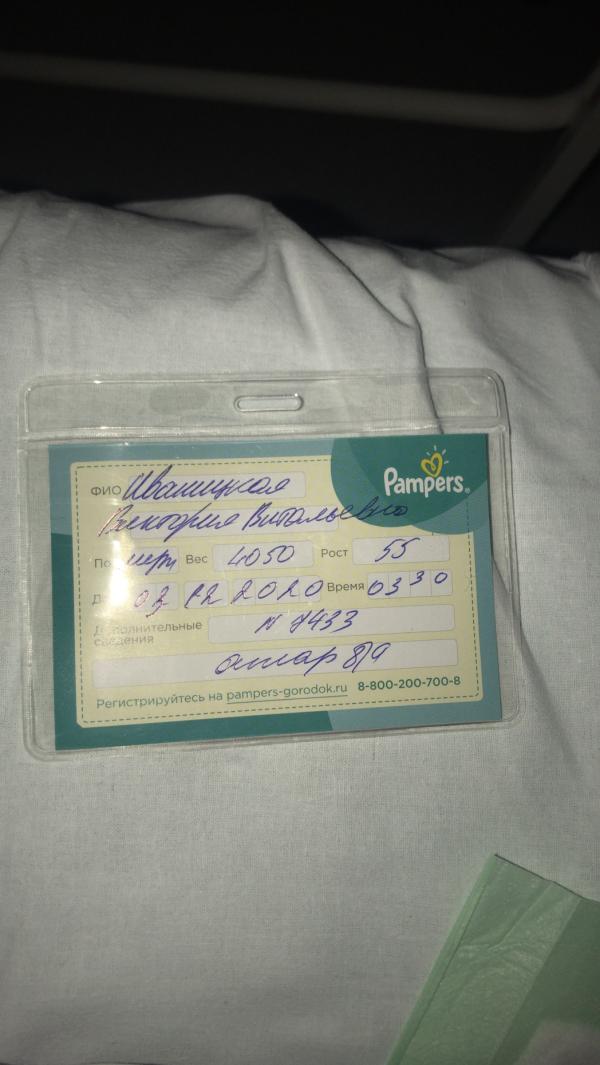 Pampers
ФИО Иваницкая
Виктория Витальевна
Вес 4050 Рост 55
03 12 2020 Время 03 30
Дополнительные
сведения
N 7433
апгар 8/9
Регистрируйтесь на pampers-gorodok.ru 8-800-200-700-8